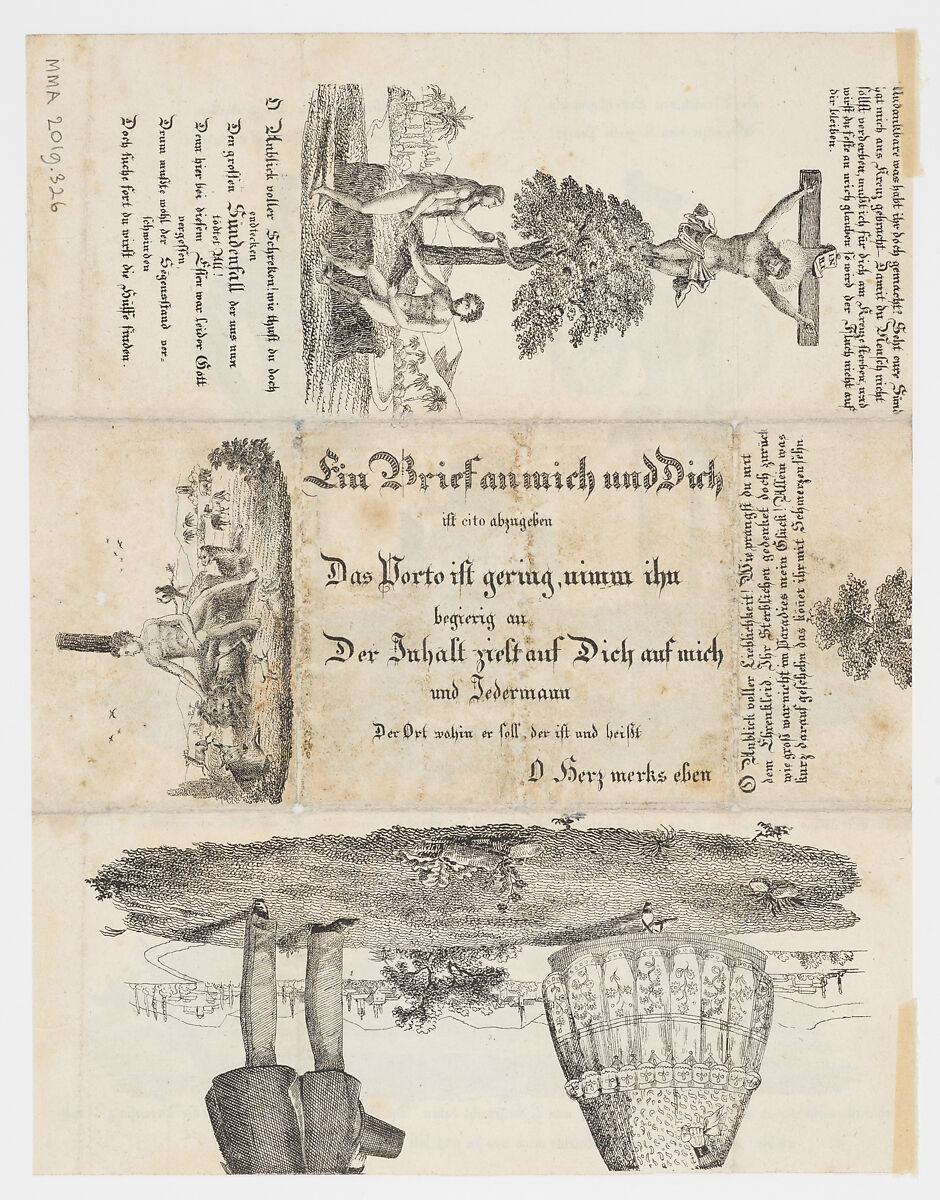 MMA 2019.326
O Anblick voller Schreken! wie thust du doch
endteken
Den grossen Sündenfall der uns nun
tödtet All!
Denn hier bei diesen Essen war leider Gott
vergessen
Drum mußte wohl der Segensstand ver-
schwinden
Doch suche fort du wirst die Hülfe finden.
Undankbare was habt ihr doch gemacht? Seht eure Sünd
hat mich ans Kreuz gebracht. Damit du Mensch nicht
sollst verderben, mußt ich für dich am Kreuze sterben, und
wirst du feste an mich glauben so wird der Fluch nicht auf
dir bleiben.
Ein Brief an mich und Dich
ist cito abzugeben
Das Porto ist gering, nimm ihn
begierig an
Der Inhalt zielt auf Dich auf mich
und Jedermann
Der Ort wohin er soll, der ist und heißt
O Herz merks eben
O Anblick voller Lieblichkeit! Wie prangst du mit
dem Ehrenkleid. Ihr Sterblichen gedenket doch zurück
wie groß war nicht im Paradies mein Glück! Allein was
kurz darauf geschehn das könnt ihr mit Schmerzen sehn